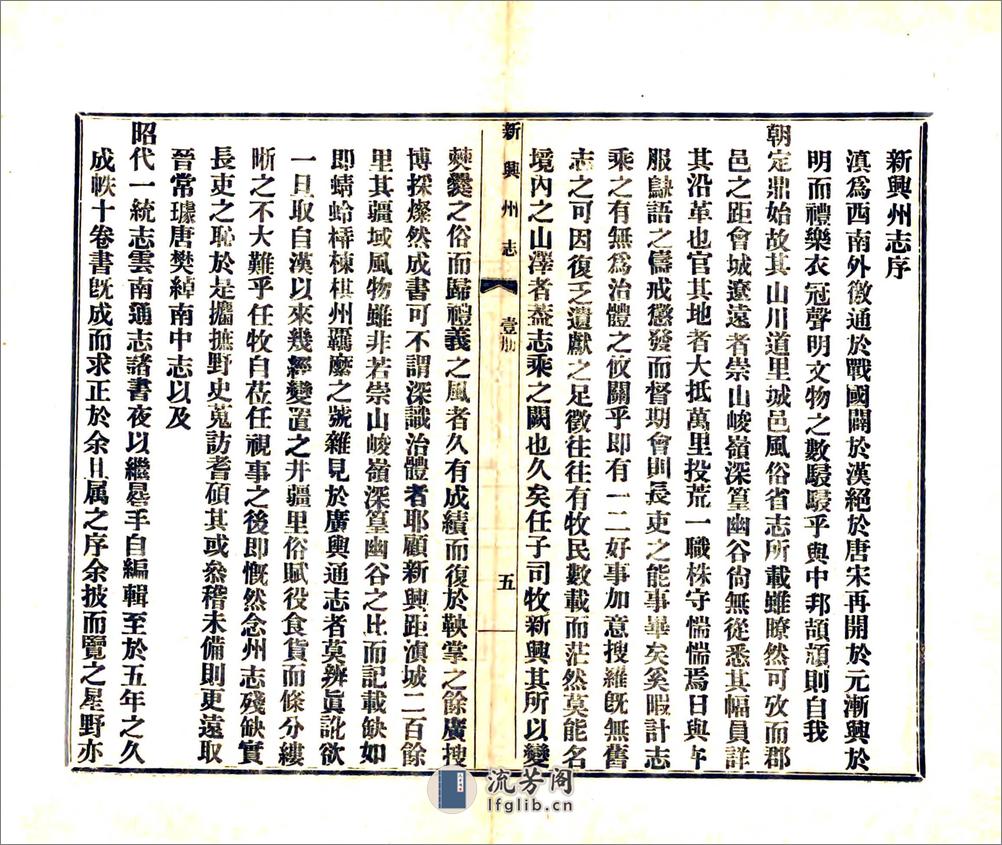 新興州志序
滇爲西南外徼通於戰國闢於漢絕於唐宋再開於元漸興於
明而禮樂衣冠聲明文物之數駸駸乎與中邦頡頏則自我
朝定鼎始故其山川道里城邑風俗省志所載雖瞭然可攷而郡
邑之距會城遼遠者崇山峻嶺深篁幽谷尙無從悉其幅員詳
其沿革也官其地者大抵萬里投荒一職株守惴惴焉日與
服隸語之儔戒懲發而督期會則長吏之能事畢矣奚暇計志
乘之有無爲治體之攸關乎即有一二好事加意搜羅旣無舊
志之可因復乏遺獻之足徵往往有牧民數載而茫然莫能名
境內之山澤者葢志乘之闕也久矣任子司牧新興其所以變
新興州志
壹册
五
僰爨之俗而歸禮義之風者久有成績而復於鞅掌之餘廣搜
博採燦然成書可不謂深識治體者耶顧新興距滇城二百餘
里其疆域風物雖非若崇山峻嶺深篁幽谷之比而記載缺如
即蜻蛉梇棟棋州羈縻之號雜見於廣輿通志者莫辨眞訛欲
一旦取自漢以來幾經變置之井疆里俗賦役食貨而條分縷
晰之不大難乎任牧自莅任視事之後即慨然念州志殘缺實
長吏之恥於是攟摭野史蒐訪耆碩其或叅稽未備則更遠取
晉常璩唐樊綽南中志以及
昭代一統志雲南通志諸書夜以繼晷手自編輯至於五年之久
成帙十卷書旣成而求正於余且属之序余披而覽之星野亦
流芳阁
lfglib.cn